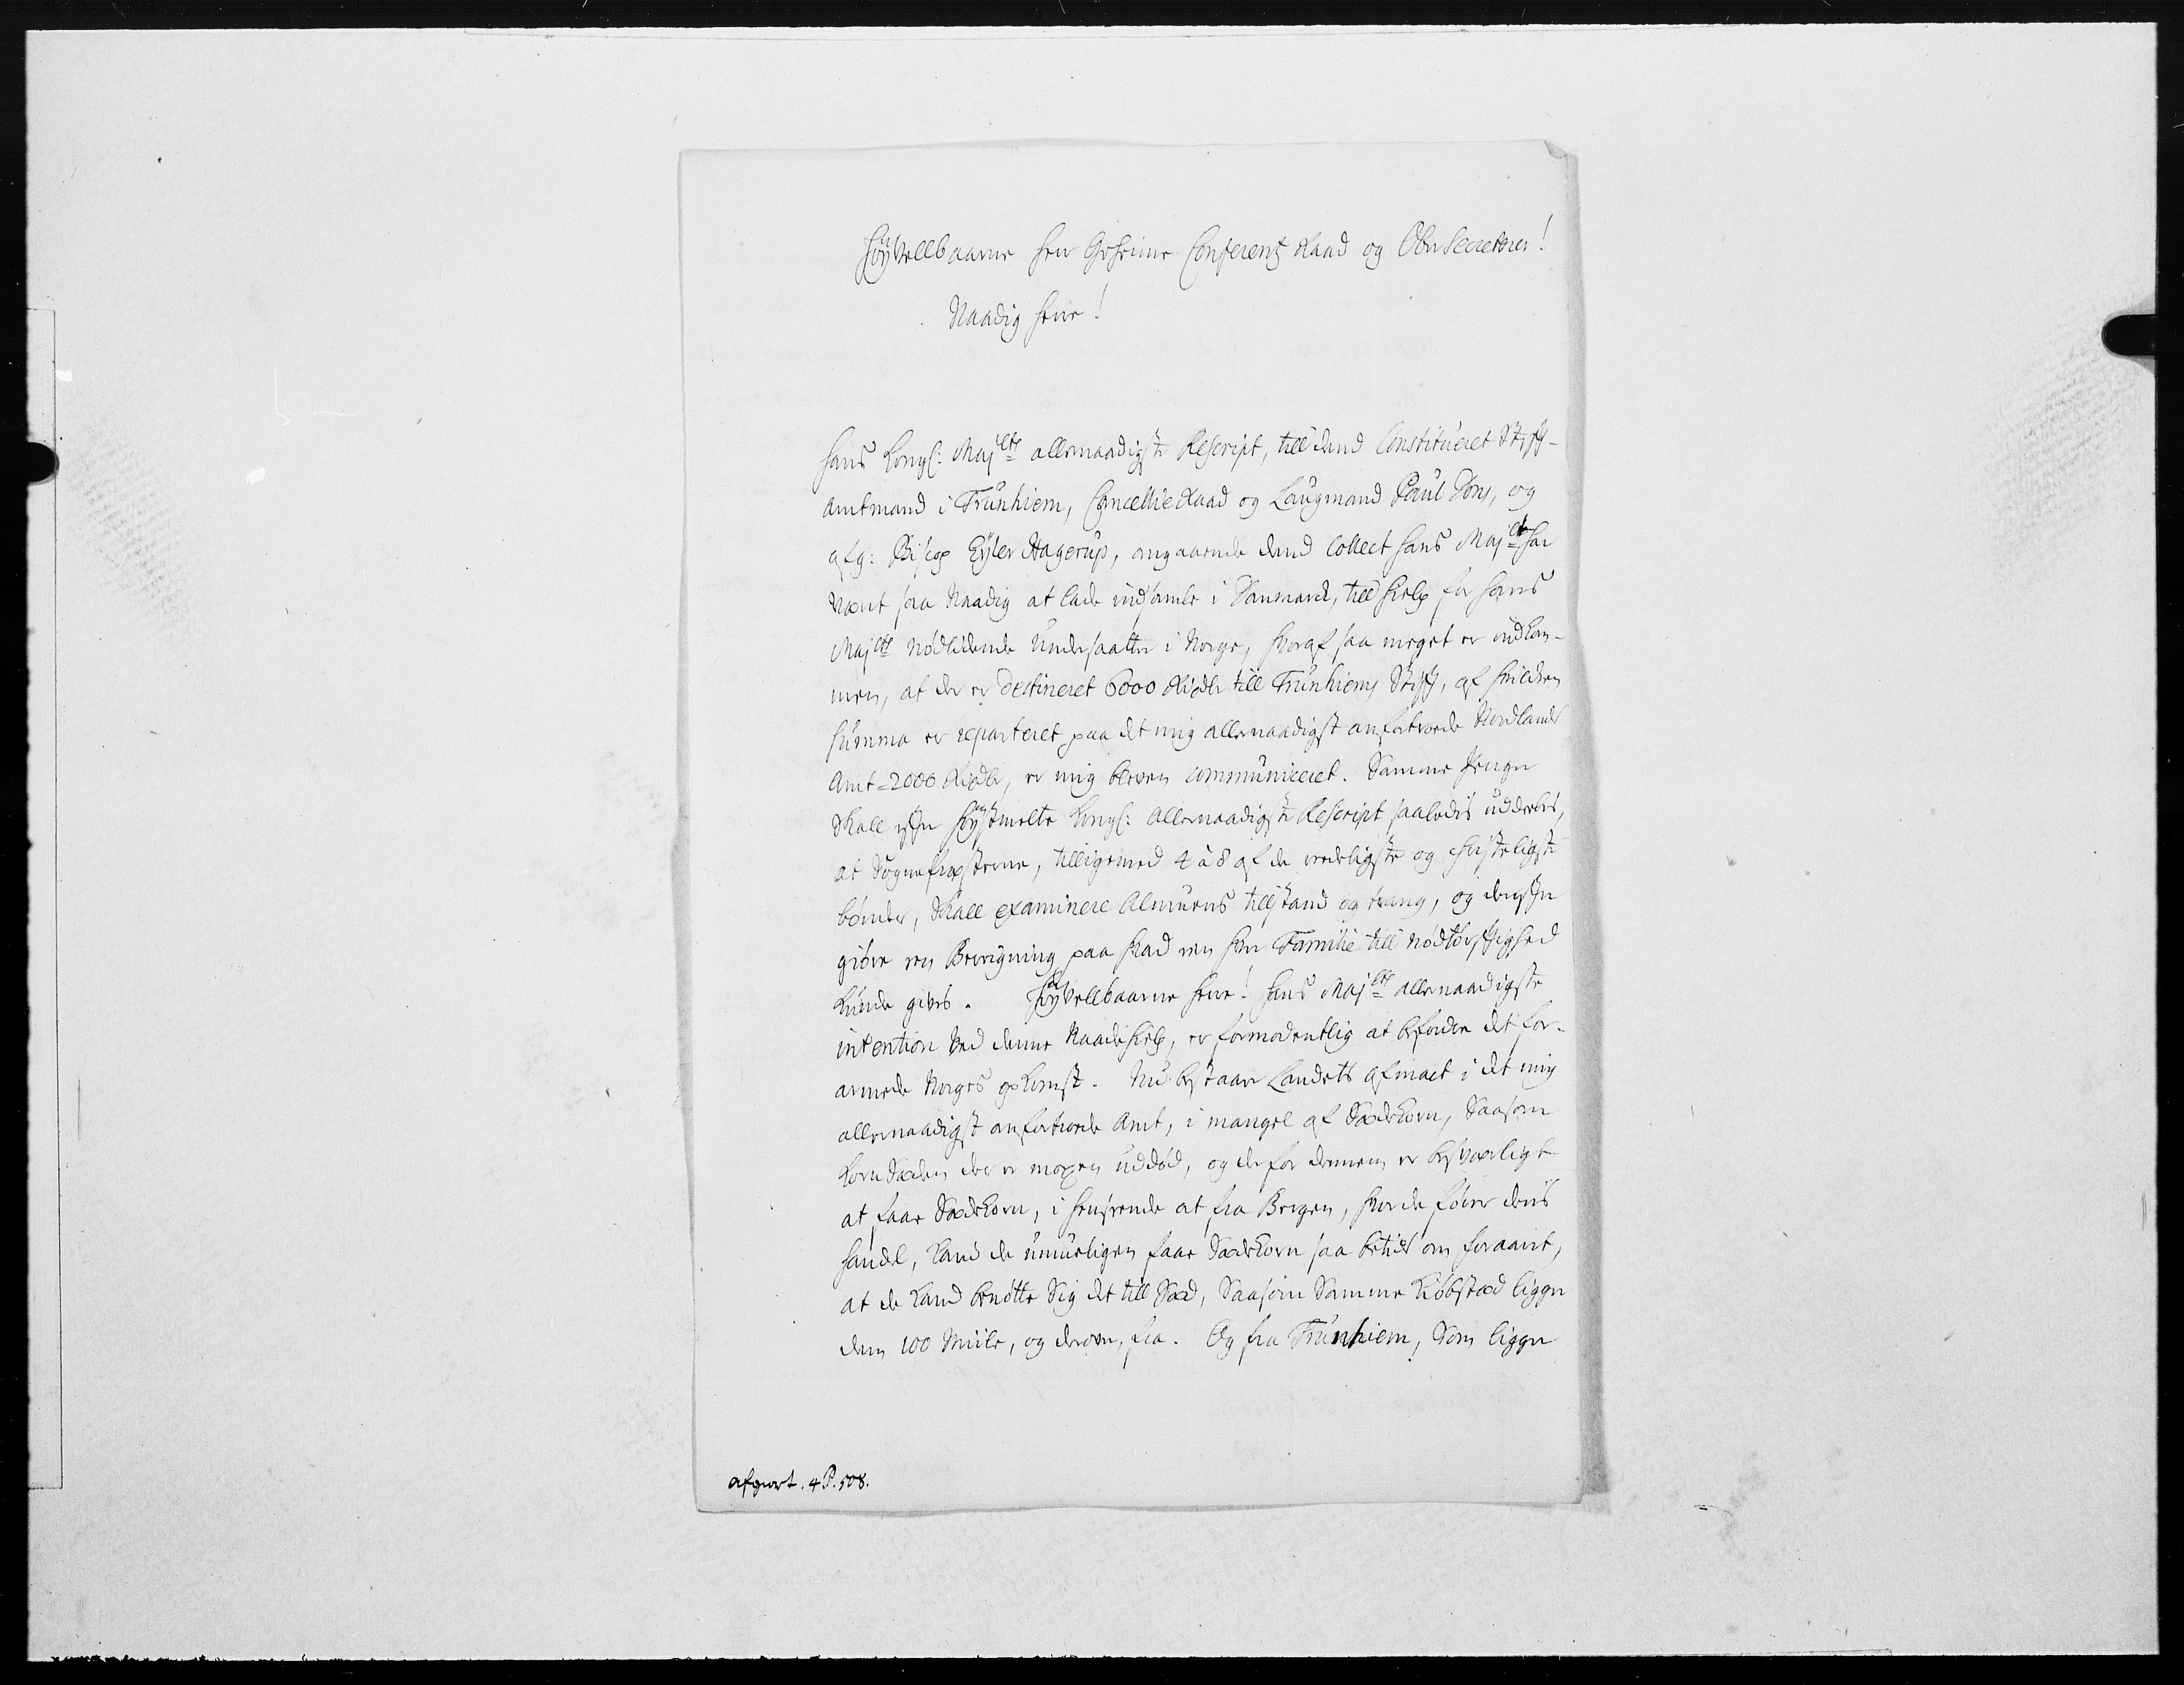 HøyVellbaarne Herr Geheime Conferentz Raad og Ober Secreterer!
Naadig Herre!
Hans Kongl: Maj<sup>ts</sup> allernaadigste Rescript, till dend Constitueret Stifft-
amtmand i Trunhiem, Cancellie Raad og Laugmand Paul Dons, og
afg: Biscop Eyler Hagerup, angaaende dend Collect Hans Maj<sup>t</sup> har
været saa Naadig at lade indsamle i Danmarck, till Hielp for Hans
Maj<sup>ts</sup> Nødlidende Undersaatter i Norge, hvoraf saa meget er indkom-
men, at der er destineret 6000 Rixdlr till Trunhiems Stifft, af hvilcken
Summa er reparteret paa det mig allernaadigst anfortroede Nordlands
Amt 2000 Rixdlr, er mig bleven communiceret. Samme Penge
skall efter Høystmelte Kongl: allernaadigste Rescript saaledis uddeelis,
at Sognepræsterne, tilligemed 4 à 8 af de reedeligste og christeligste
bønder, skall examinere Almuens tillstand og trang, og derefter
giøre een Beregning paa hvad een hver Familie till Nødtørfftighed
kunde gives. HøyVellbaarne Herre! Hans Maj<sup>ts</sup> allernaadigste
intention ved denne Naade Hielp, er formodentlig at befordre det for-
armede Norges opkomst. Nu bestaar Landets afmact i det mig
allernaadigst anfortroede Amt, i mangel af Sædekorn, Saasom
korn Sæden der er mexen uddød, og de for dennem er besværligt
at faae Sædekorn, i henseende at fra Bergen, hvor de fører deris
handel, kand de umueligen faae Sædekorn saa betids om foraaret,
at de kand benøtte Sig det till Sæd, Saasom Samme Kiøbstæd ligger
dem 100 Miile, og derover, fra. Og fra Trunhiem, Som ligger
afgiort. 4 P. 508.